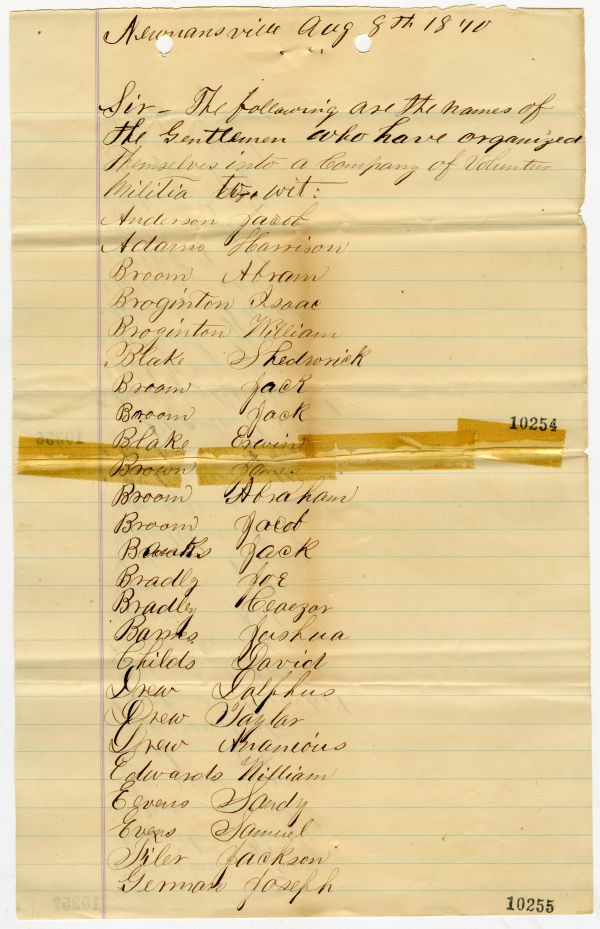 Newnansville Aug 8th 1870
Sir - The following are the names of
the Gentlemen who have organized
themselves into a Company of Volunteer
Militia to, wit:
Anderson Jacob
Adams Harrison
Broom Abram
Broginton Isaac
Broginton William
Blake Shedwrick
Broom Jack
Broom Jack
10254
Blake Erwin
Brown James
Broom Abraham
Broom Jacob
Banks Jack
Bradly Joe
Bradley
Barnes Jushua
Childs David
Drew Dolphus
Drew Taylar
Drew Ananious
Edwards William
Eevens Sandy
Evens Samuel
Jackson
German Joseph
10255